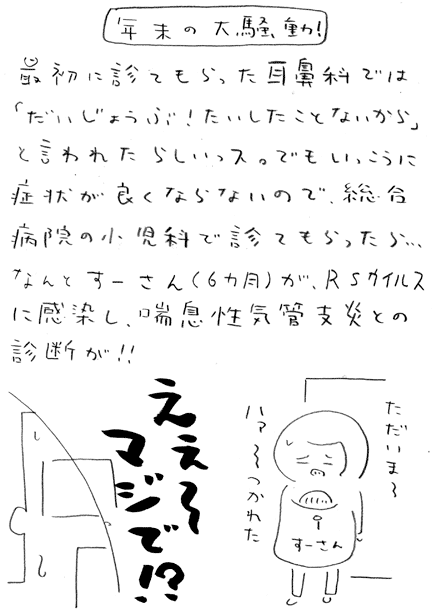 年末の大騒動!
最初に診てもらった耳鼻科では
「だいじょうぶ!たいしたことないから」
と言われたらしいっス。でもいっこうに
症状が良くならないので、総合
病院の小児科で診てもらったら…
なんとすーさん(6カ月)が、RSウイルス
に感染し、喘息性気管支炎との
診断が!!
ええ〜
マジで!?
ただいま〜
ハァ〜つかれた
すーさん